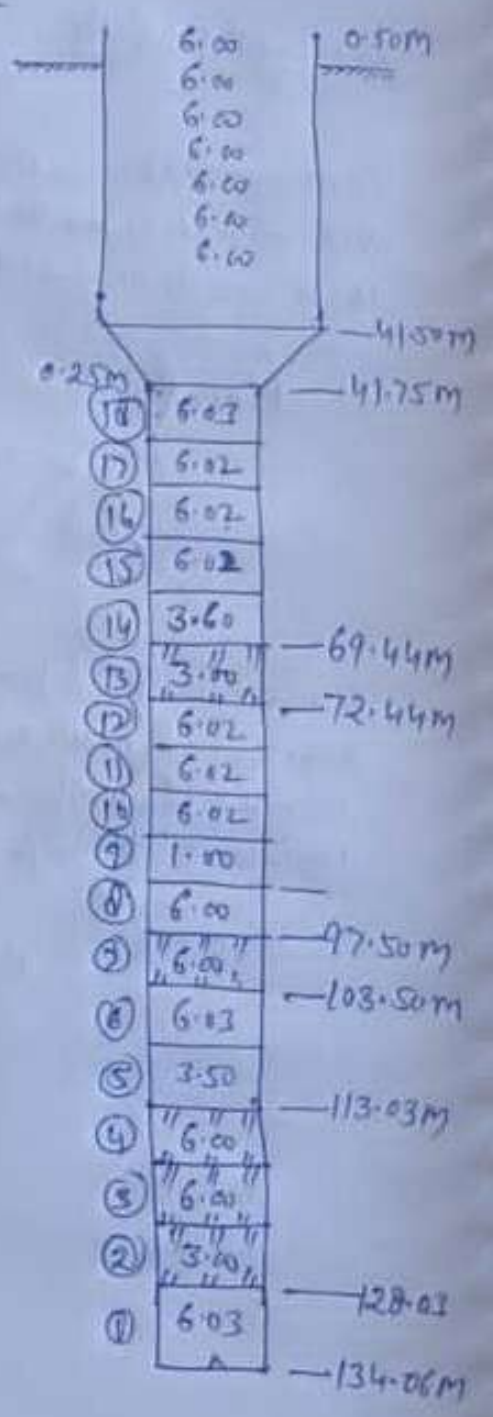 6.00 0.50M
6.00
6.00
6.00
6.00
6.00
6.00
41.50m
0.25m 41.75m
18 6.03
17 6.02
16 6.02
15 6.02
14 3.60
69.44m
13 3.00
72.44m
12 6.02
11 6.02
10 6.02
9 1.00
8 6.00
97.50m
7 6.00
103.50m
6 6.03
5 3.50
113.03m
4 6.00
3 6.00
2 3.00
128.03
1 6.03
134.06m